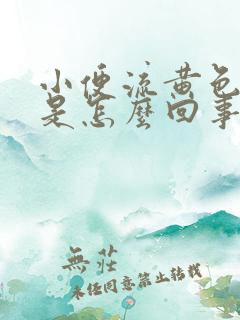 小便流黄色
是怎麼回事
無莊
未经同意禁止转载